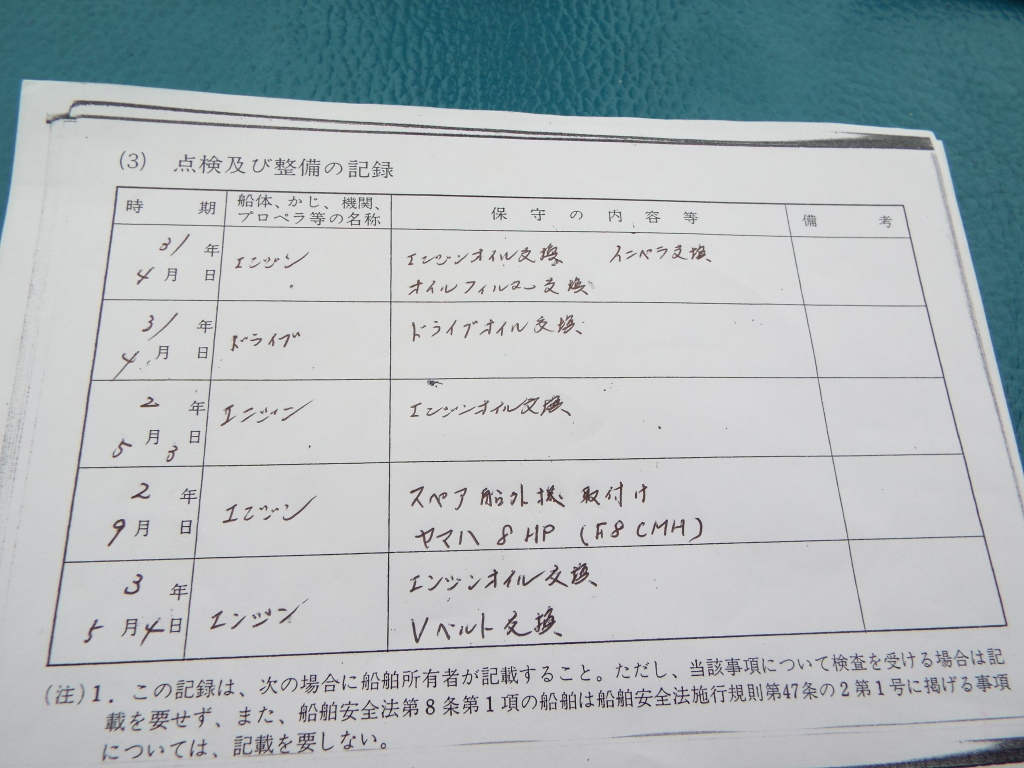 (3) 点検及び整備の記録
時 期 船体、かじ、機関、プロペラ等の名称 保守の内容等 備 考
31年 4月 日 エンジン エンジンオイル交換 インペラ交換
オイルフィルター交換
31年 4月 日 ドライブ ドライブオイル交換
2年 5月3日 エンジン エンジンオイル交換
2年 9月 日 エンジン スペア船外機取付け
ヤマハ 8HP (F8CMH)
3年 5月4日 エンジン エンジンオイル交換
Vベルト交換
(注) 1. この記録は、次の場合に船舶所有者が記載すること。ただし、当該事項について検査を受ける場合は記
載を要せず、また、船舶安全法第8条第1項の船舶は船舶安全法施行規則第47条の2第1号に掲げる事項
については、記載を要しない。